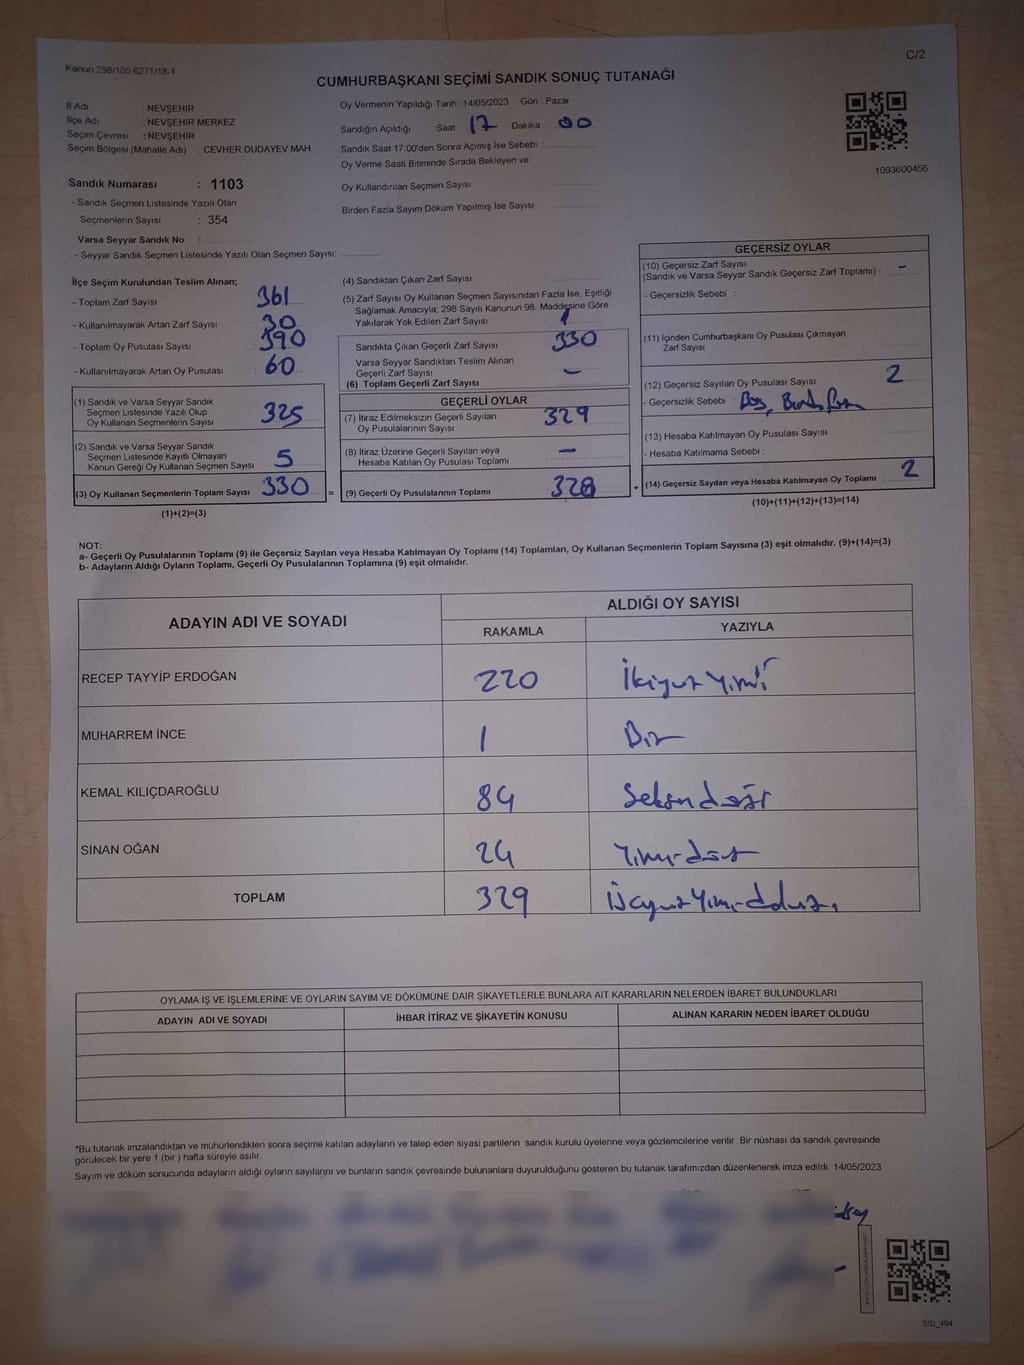 Kanun:298/105.6271/18-1
C/2
CUMHURBAŞKANI SEÇİMİ SANDIK SONUÇ TUTANAĞI
İl Adı : NEVŞEHİR
İlçe Adı : NEVŞEHİR MERKEZ
Seçim Çevresi : NEVŞEHİR
Seçim Bölgesi (Mahalle Adı) CEVHER DUDAYEV MAH.
Sandık Numarası : 1103
- Sandık Seçmen Listesinde Yazılı Olan
Seçmenlerin Sayısı : 354
Varsa Seyyar Sandık No :
- Seyyar Sandık Seçmen Listesinde Yazılı Olan Seçmen Sayısı:
Oy Vermenin Yapıldığı Tarih : 14/05/2023 Gün : Pazar
Sandığın Açıldığı Saat 17 Dakika 00
Sandık Saat 17:00'den Sonra Açımış İse Sebebi :
Oy Verme Saati Bitiminde Sırada Bekleyen ve
Oy Kullandırılan Seçmen Sayısı
Birden Fazla Sayım Döküm Yapılmış İse Sayısı :
1093600456
İlçe Seçim Kurulundan Teslim Alınan;
- Toplam Zarf Sayısı : 361
- Kullanılmayarak Artan Zarf Sayısı : 30
- Toplam Oy Pusulası Sayısı : 390
- Kullanılmayarak Artan Oy Pusulası : 60
(1) Sandık ve Varsa Seyyar Sandık
Seçmen Listesinde Yazılı Olup
Oy Kullanan Seçmenlerin Sayısı : 325
(2) Sandık ve Varsa Seyyar Sandık
Seçmen Listesinde Kayıtlı Olmayan
Kanun Gereği Oy Kullanan Seçmen Sayısı : 5
(3) Oy Kullanan Seçmenlerin Toplam Sayısı : 330
(1)+(2)=(3)
(4) Sandıktan Çıkan Zarf Sayısı
(5) Zarf Sayısı Oy Kullanan Seçmen Sayısından Fazla İse, Eşitliği
Sağlamak Amacıyla; 298 Sayılı Kanunun 98. Maddesine Göre
Yakılarak Yok Edilen Zarf Sayısı : 1
Sandıkta Çıkan Geçerli Zarf Sayısı : 330
Varsa Seyyar Sandıktan Teslim Alınan
Geçerli Zarf Sayısı : -
(6) Toplam Geçerli Zarf Sayısı
GEÇERLİ OYLAR
(7) İtiraz Edilmeksizin Geçerli Sayılan
Oy Pusulalarının Sayısı : 329
(8) İtiraz Üzerine Geçerli Sayılan veya
Hesaba Katılan Oy Pusulası Toplamı : -
= (9) Geçerli Oy Pusulalarının Toplamı : 328
GEÇERSİZ OYLAR
(10) Geçersiz Zarf Sayısı
(Sandık ve Varsa Seyyar Sandık Geçersiz Zarf Toplamı) : -
- Geçersizlik Sebebi :
(11) İçinden Cumhurbaşkanı Oy Pusulası Çıkmayan
Zarf Sayısı
(12) Geçersiz Sayılan Oy Pusulası Sayısı : 2
- Geçersizlik Sebebi : Boş,
(13) Hesaba Katılmayan Oy Pusulası Sayısı
- Hesaba Katılmama Sebebi :
+ (14) Geçersiz Sayılan veya Hesaba Katılmayan Oy Toplamı : 2
(10)+(11)+(12)+(13)=(14)
NOT:
a- Geçerli Oy Pusulalarının Toplamı (9) ile Geçersiz Sayılan veya Hesaba Katılmayan Oy Toplamı (14) Toplamları, Oy Kullanan Seçmenlerin Toplam Sayısına (3) eşit olmalıdır. (9)+(14)=(3)
b- Adayların Aldığı Oyların Toplamı, Geçerli Oy Pusulalarının Toplamına (9) eşit olmalıdır.
ADAYIN ADI VE SOYADI
ALDIĞI OY SAYISI
RAKAMLA YAZIYLA
RECEP TAYYİP ERDOĞAN 220 İkiyüzYirmi
MUHARREM İNCE 1 Bir
KEMAL KILIÇDAROĞLU 84 Seksendört
SİNAN OĞAN 24 Yirmidört
TOPLAM 329 ÜçyüzYirmidokuz
OYLAMA İŞ VE İŞLEMLERİNE VE OYLARIN SAYIM VE DÖKÜMÜNE DAİR ŞİKAYETLERLE BUNLARA AİT KARARLARIN NELERDEN İBARET BULUNDUKLARI
ADAYIN ADI VE SOYADI İHBAR İTİRAZ VE ŞİKAYETİN KONUSU ALINAN KARARIN NEDEN İBARET OLDUĞU
*Bu tutanak imzalandıktan ve mühürlendikten sonra seçime katılan adayların ve talep eden siyasi partilerin sandık kurulu üyelerine veya gözlemcilerine verilir. Bir nüshası da sandık çevresinde
görülecek bir yere 1 (bir ) hafta süreyle asılır.
Sayım ve döküm sonucunda adayların aldığı oyların sayılarını ve bunların sandık çevresinde bulunanlara duyurulduğunu gösteren bu tutanak tarafımızdan düzenlenerek imza edildi. 14/05/2023
SSI_404